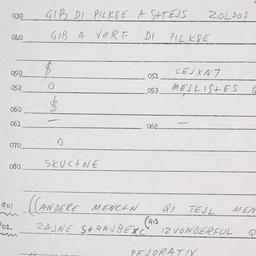 030 GIB DI PILKE A STEJS ZOLDOS
040 GIB A VORF DI PILKE
050 $ 051 CEJXN7
052 0 053 MEJLISTES
060 $
061 — 062 —
070 0
080 SKUCTNE
901 ((ANDERE MENCTN QI TEJL MEN
902 ZAJNE STRAJBEXC (413 IZVONDERFUL Q
PEJORATIV